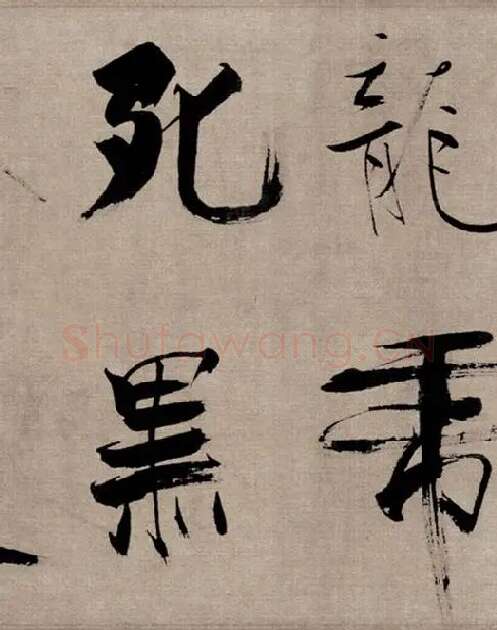 龍
死黑
Shufawang.CN